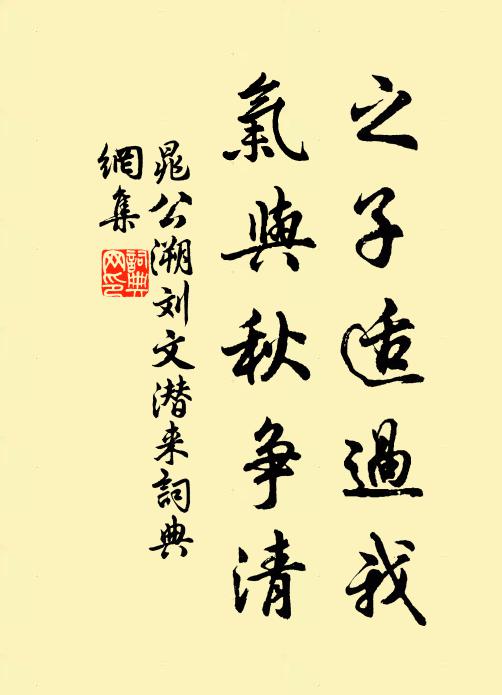 之子适過我
氣與秋争清
晁公溯刘文潜来詞典
網集
詞典
网印